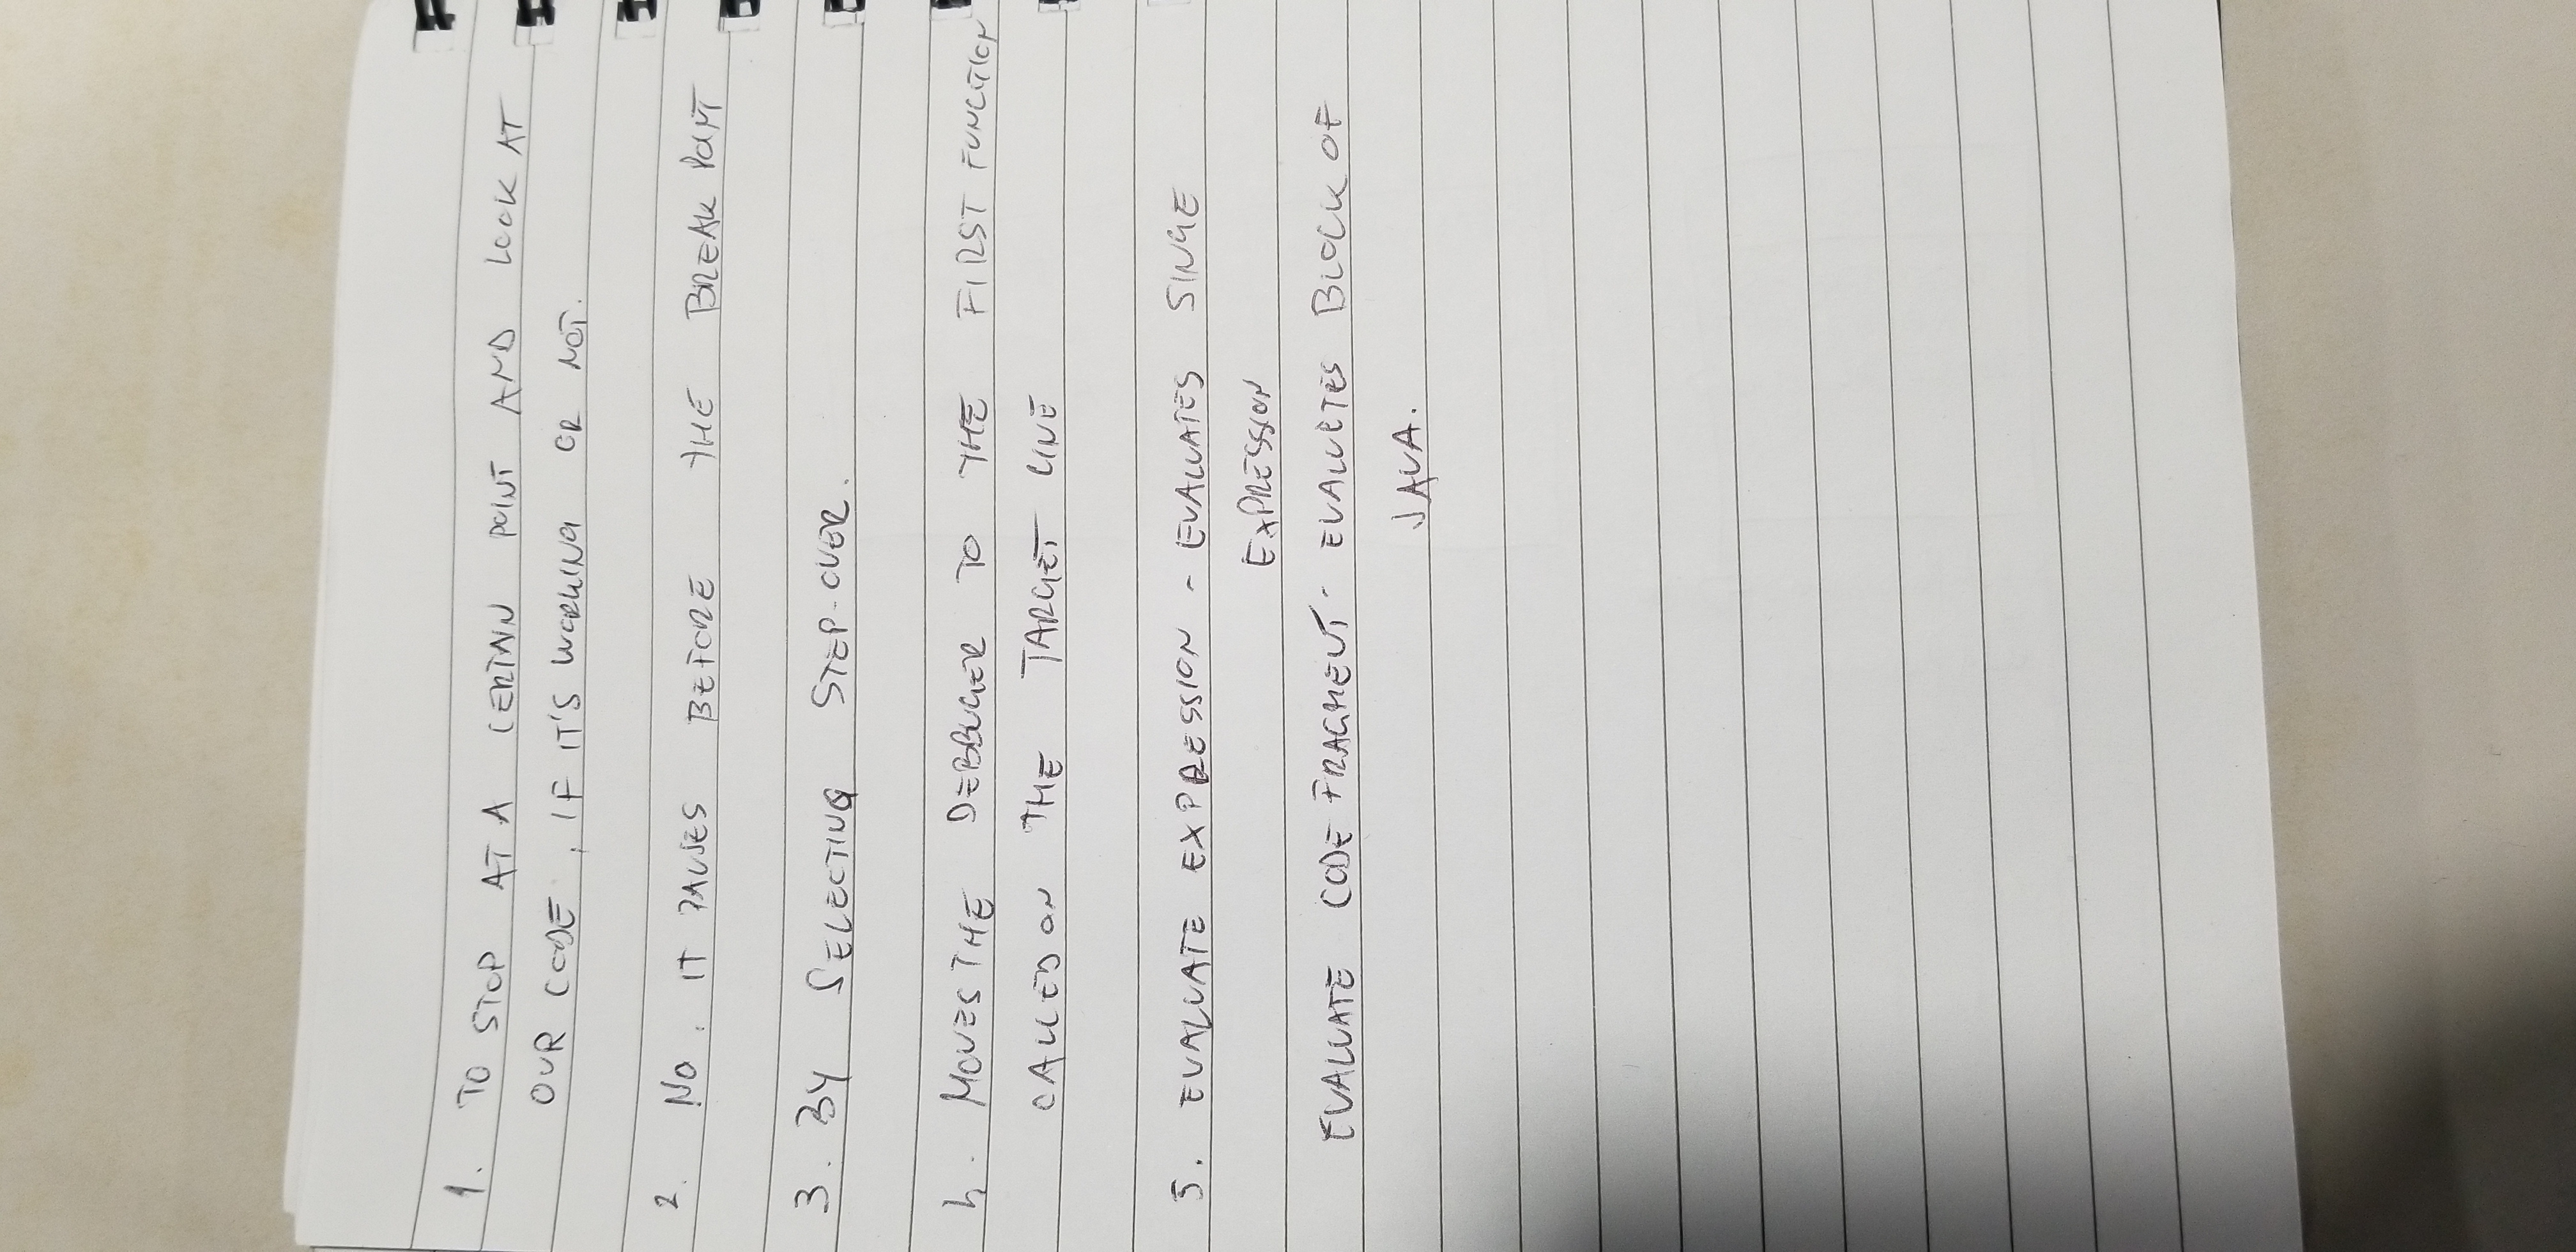 1. TO STOP AT A CERTAIN POINT AND LOOK AT
OUR CODE, IF IT'S WORKING OR NOT.
2. NO, IT PAUSES BEFORE THE BREAK POINT
3. BY SELECTING STEP-OVER.
4. MOVES THE DEBBUGER TO THE FIRST FUNCTION
CALLED ON THE TARGET LINE
5. EVALUATE EXPRESSION - EVALUATES SINGE
EXPRESSION
EVALUATE CODE FRAGMENT - EVALUETES BLOCK OF
JAVA.